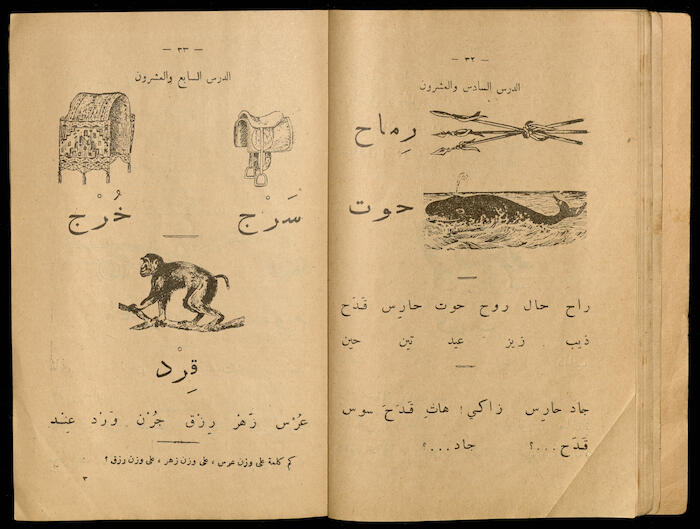 — ٣٢ —
الدرس السادس والعشرون
رِماح
حوت
راح حال روح حوت حارِس قَدَح
ذيب زيز عيد تين حين
جاد حارِس زاكي! هاتِ قَدَحَ سوس
قَدَح...؟ جاد...؟
— ٣٣ —
الدرس السابع والعشرون
سَرْج خُرْج
قِرْد
عُرْس زَهْر رِزْق جُرْن وَرْد عِنْد
كم كلمة على وزن عرس ، على وزن زهر ، على وزن رزق ؟
٣